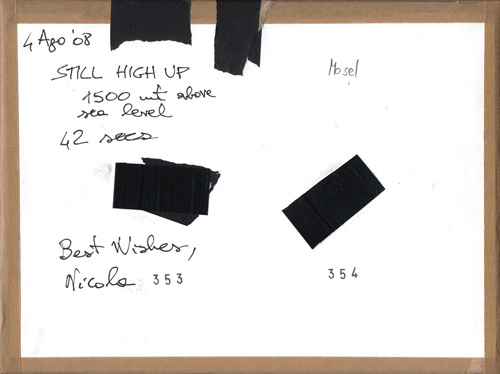 4 Ago '08
STILL HIGH UP
1500 mt above
sea level
42 secs
Mosel
Best Wishes,
Nicola 353
354